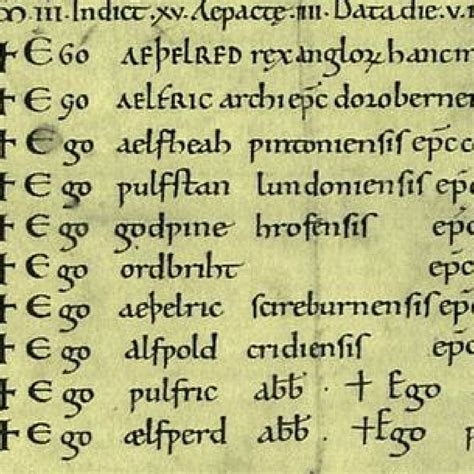 .iii.Indict.xv.Aepactę.iiii.Data die.v.
+ EGO AEÞELRED rex angloꝝ hanc
+ EGO AELFRIC archiep̄c doroberne
+ Ego aelfheah ƿintonienſiſ ep̄c
+ Ego ƿulfſtan lundonienſiſ ep̄c
+ Ego godƿine hrofenſiſ ep̄c
+ Ego ordbriht ep̄c
+ Ego aeþelric ſcireburnenſiſ ep̄c
+ Ego alfƿold cridienſiſ ep̄c
+ Ego ƿulfric abb̄. + Ego
+ Ego ælfƿerd abb̄. +Ego